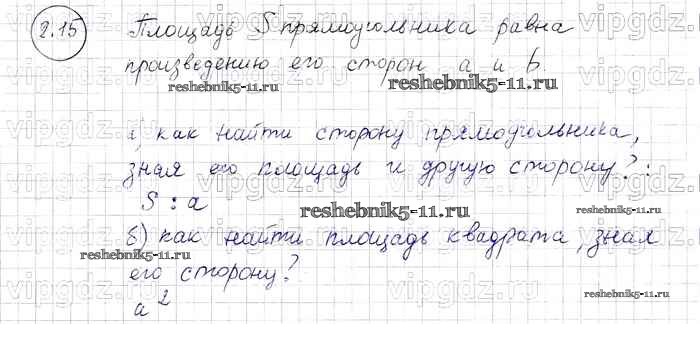 2.15 Площадь S прямоугольника равна
произведению его сторон a и b.
а) как найти сторону прямоугольника,
зная его площадь и другую сторону? :
S : a
б) как найти площадь квадрата, зная
его сторону?
a²
reshebnik5-11.ru
reshebnik5-11.ru
reshebnik5-11.ru
reshebnik5-11.ru
reshebnik5-11.ru
reshebnik5-11.ru
vipgdz.ru